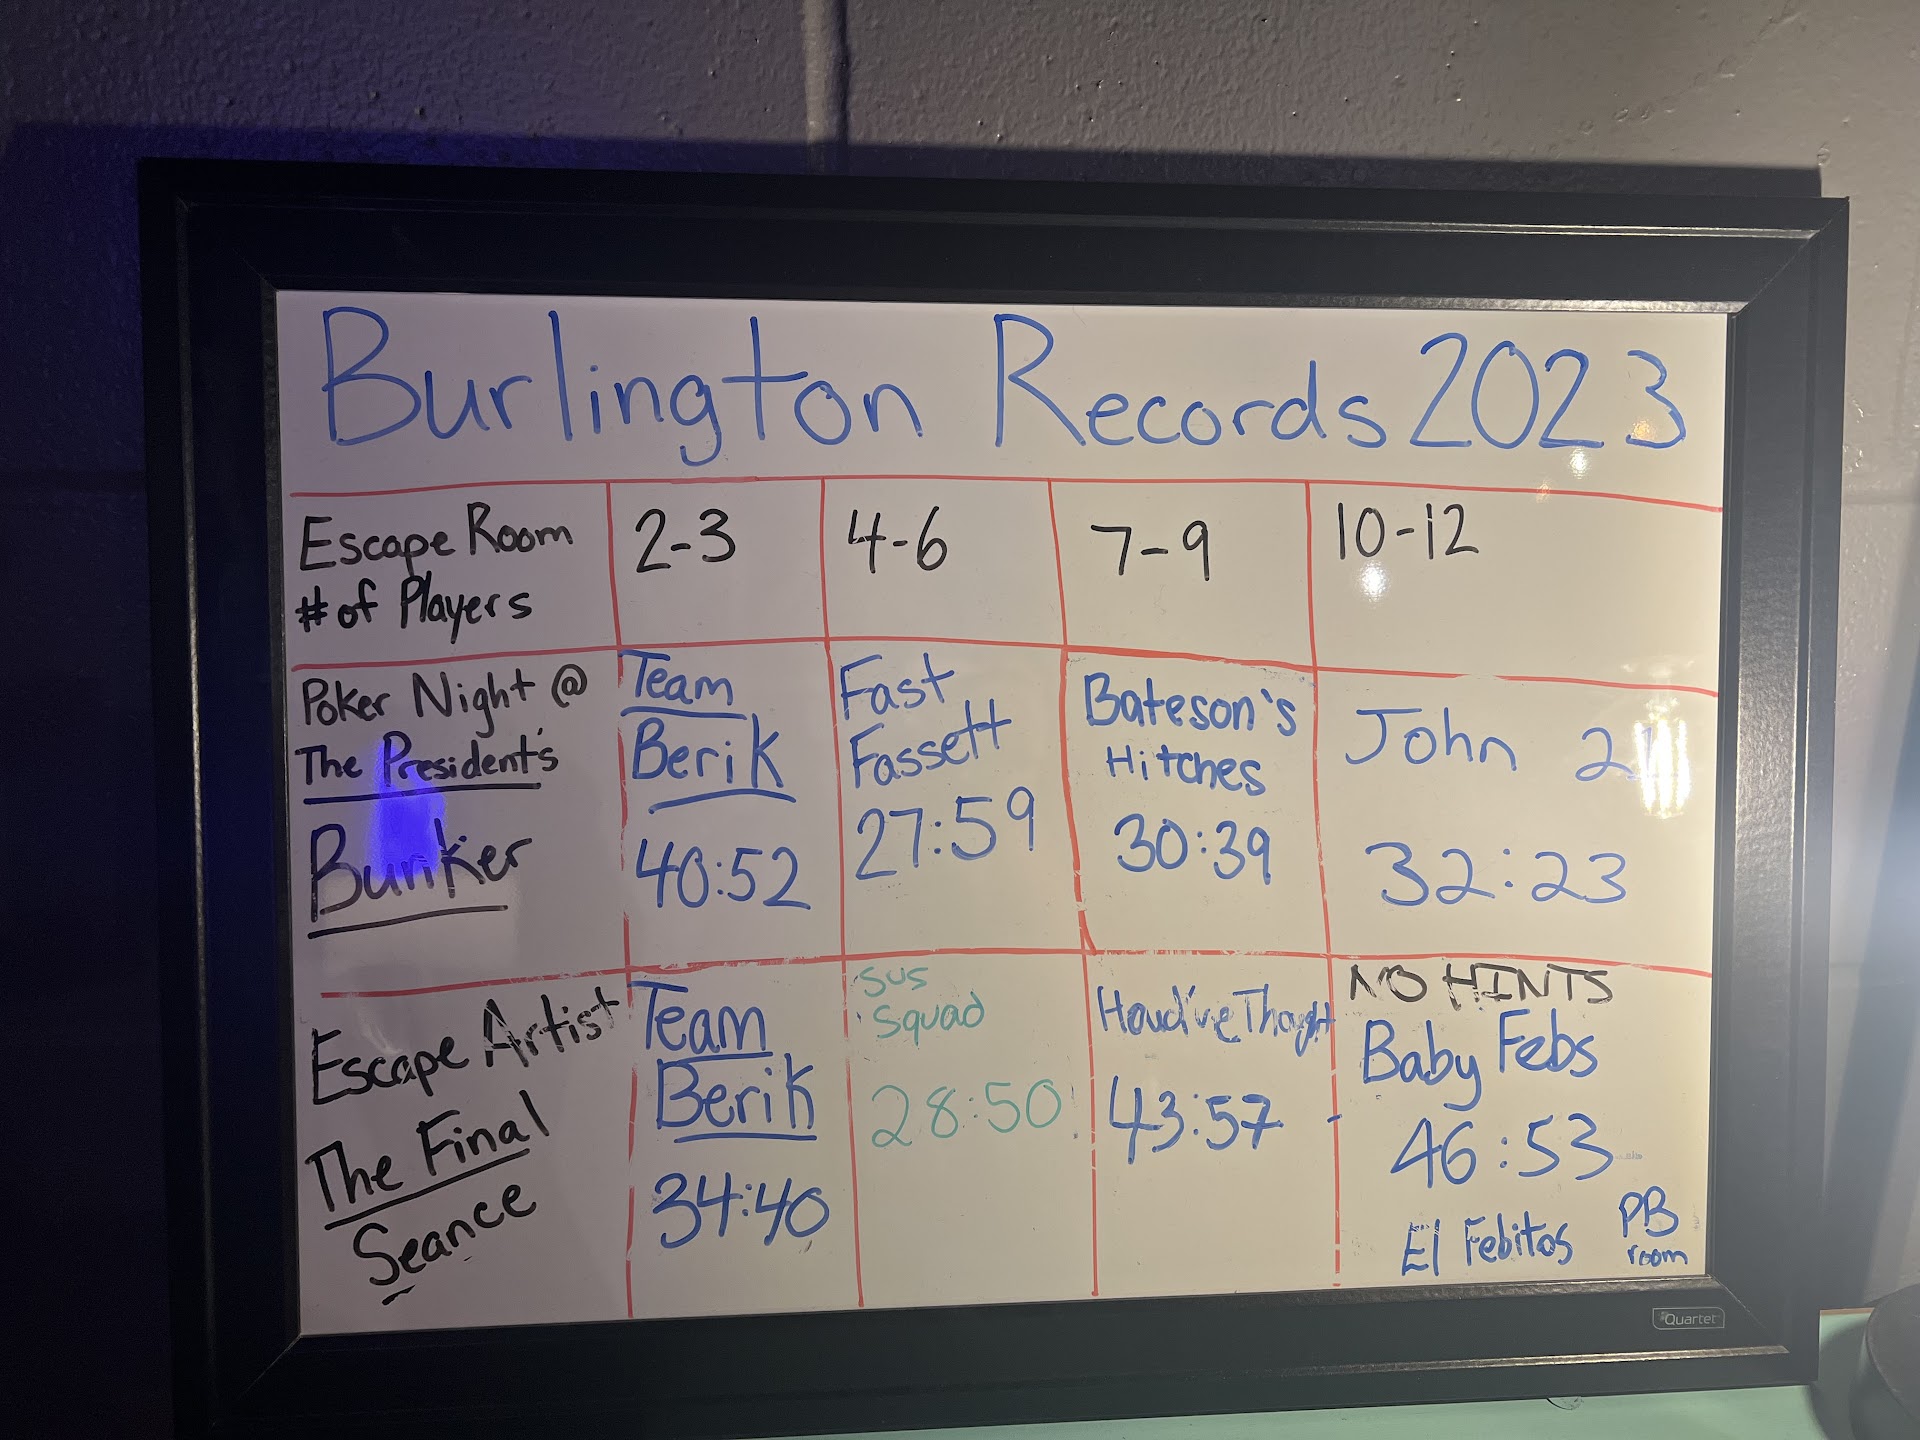 Burlington Records 2023
Escape Room
# of Players
2-3
4-6
7-9
10-12
Poker Night @
The President's
Bunker
Team
Berik
40:52
Fast
Fassett
27:59
Bateson's
Hitches
30:39
John
32:23
Escape Artist
The Final
Seance
Team
Berik
34:40
Sus
Squad
28:50
Houdi've Thought
43:57
NO HINTS
Baby Febs
46:53
El Febitos
PB
room
Quartet